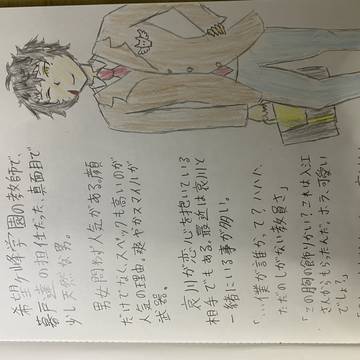 希望ヶ峰学園の教師で、
暮戸達の担任だった、真面目で
少し天然な男。
男女問わず人気がある。顔
だけでなく、スペックも高いのが
人気の理由。爽やかスマイルが
武器。
哀川が恋心を抱いている
相手でもある。最近は哀川と
一緒にいる事が多い。
「…僕が誰かって?ハハハ、
ただのしがない教員さ」
「この胸の飾りかい?これは入江
さんからもらったんだ。ホラ、可愛い
でしょ?」